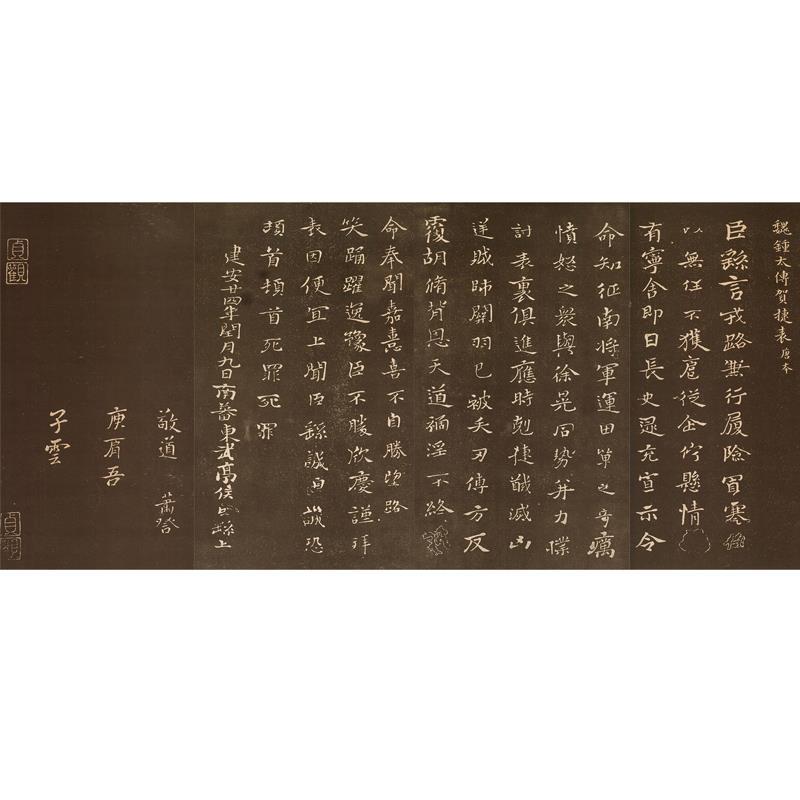 魏鍾太傅賀捷表 唐本
臣繇言戎路兼行履險冒寒臣
以無任不獲扈從企佇懸情
有寧舍即日長史逯充宣示令
命知征南將軍運田單之奇厲
憤怒之衆與徐晃同勢并力撲
討表裏俱進應時剋捷馘滅凶
逆賊帥關羽已被矢刃傅方反
覆胡脩背恩天道禍淫不終
命奉聞嘉憙喜不自勝望路
笑踊躍逸豫臣不勝欣慶謹拜
表因便宜上聞臣繇誠皇誠恐
頓首頓首死罪死罪
建安廿四年閏月九日南蕃東武亭侯臣繇上
敬道 蕭
庚肩吾
子雲
貞觀
貞觀